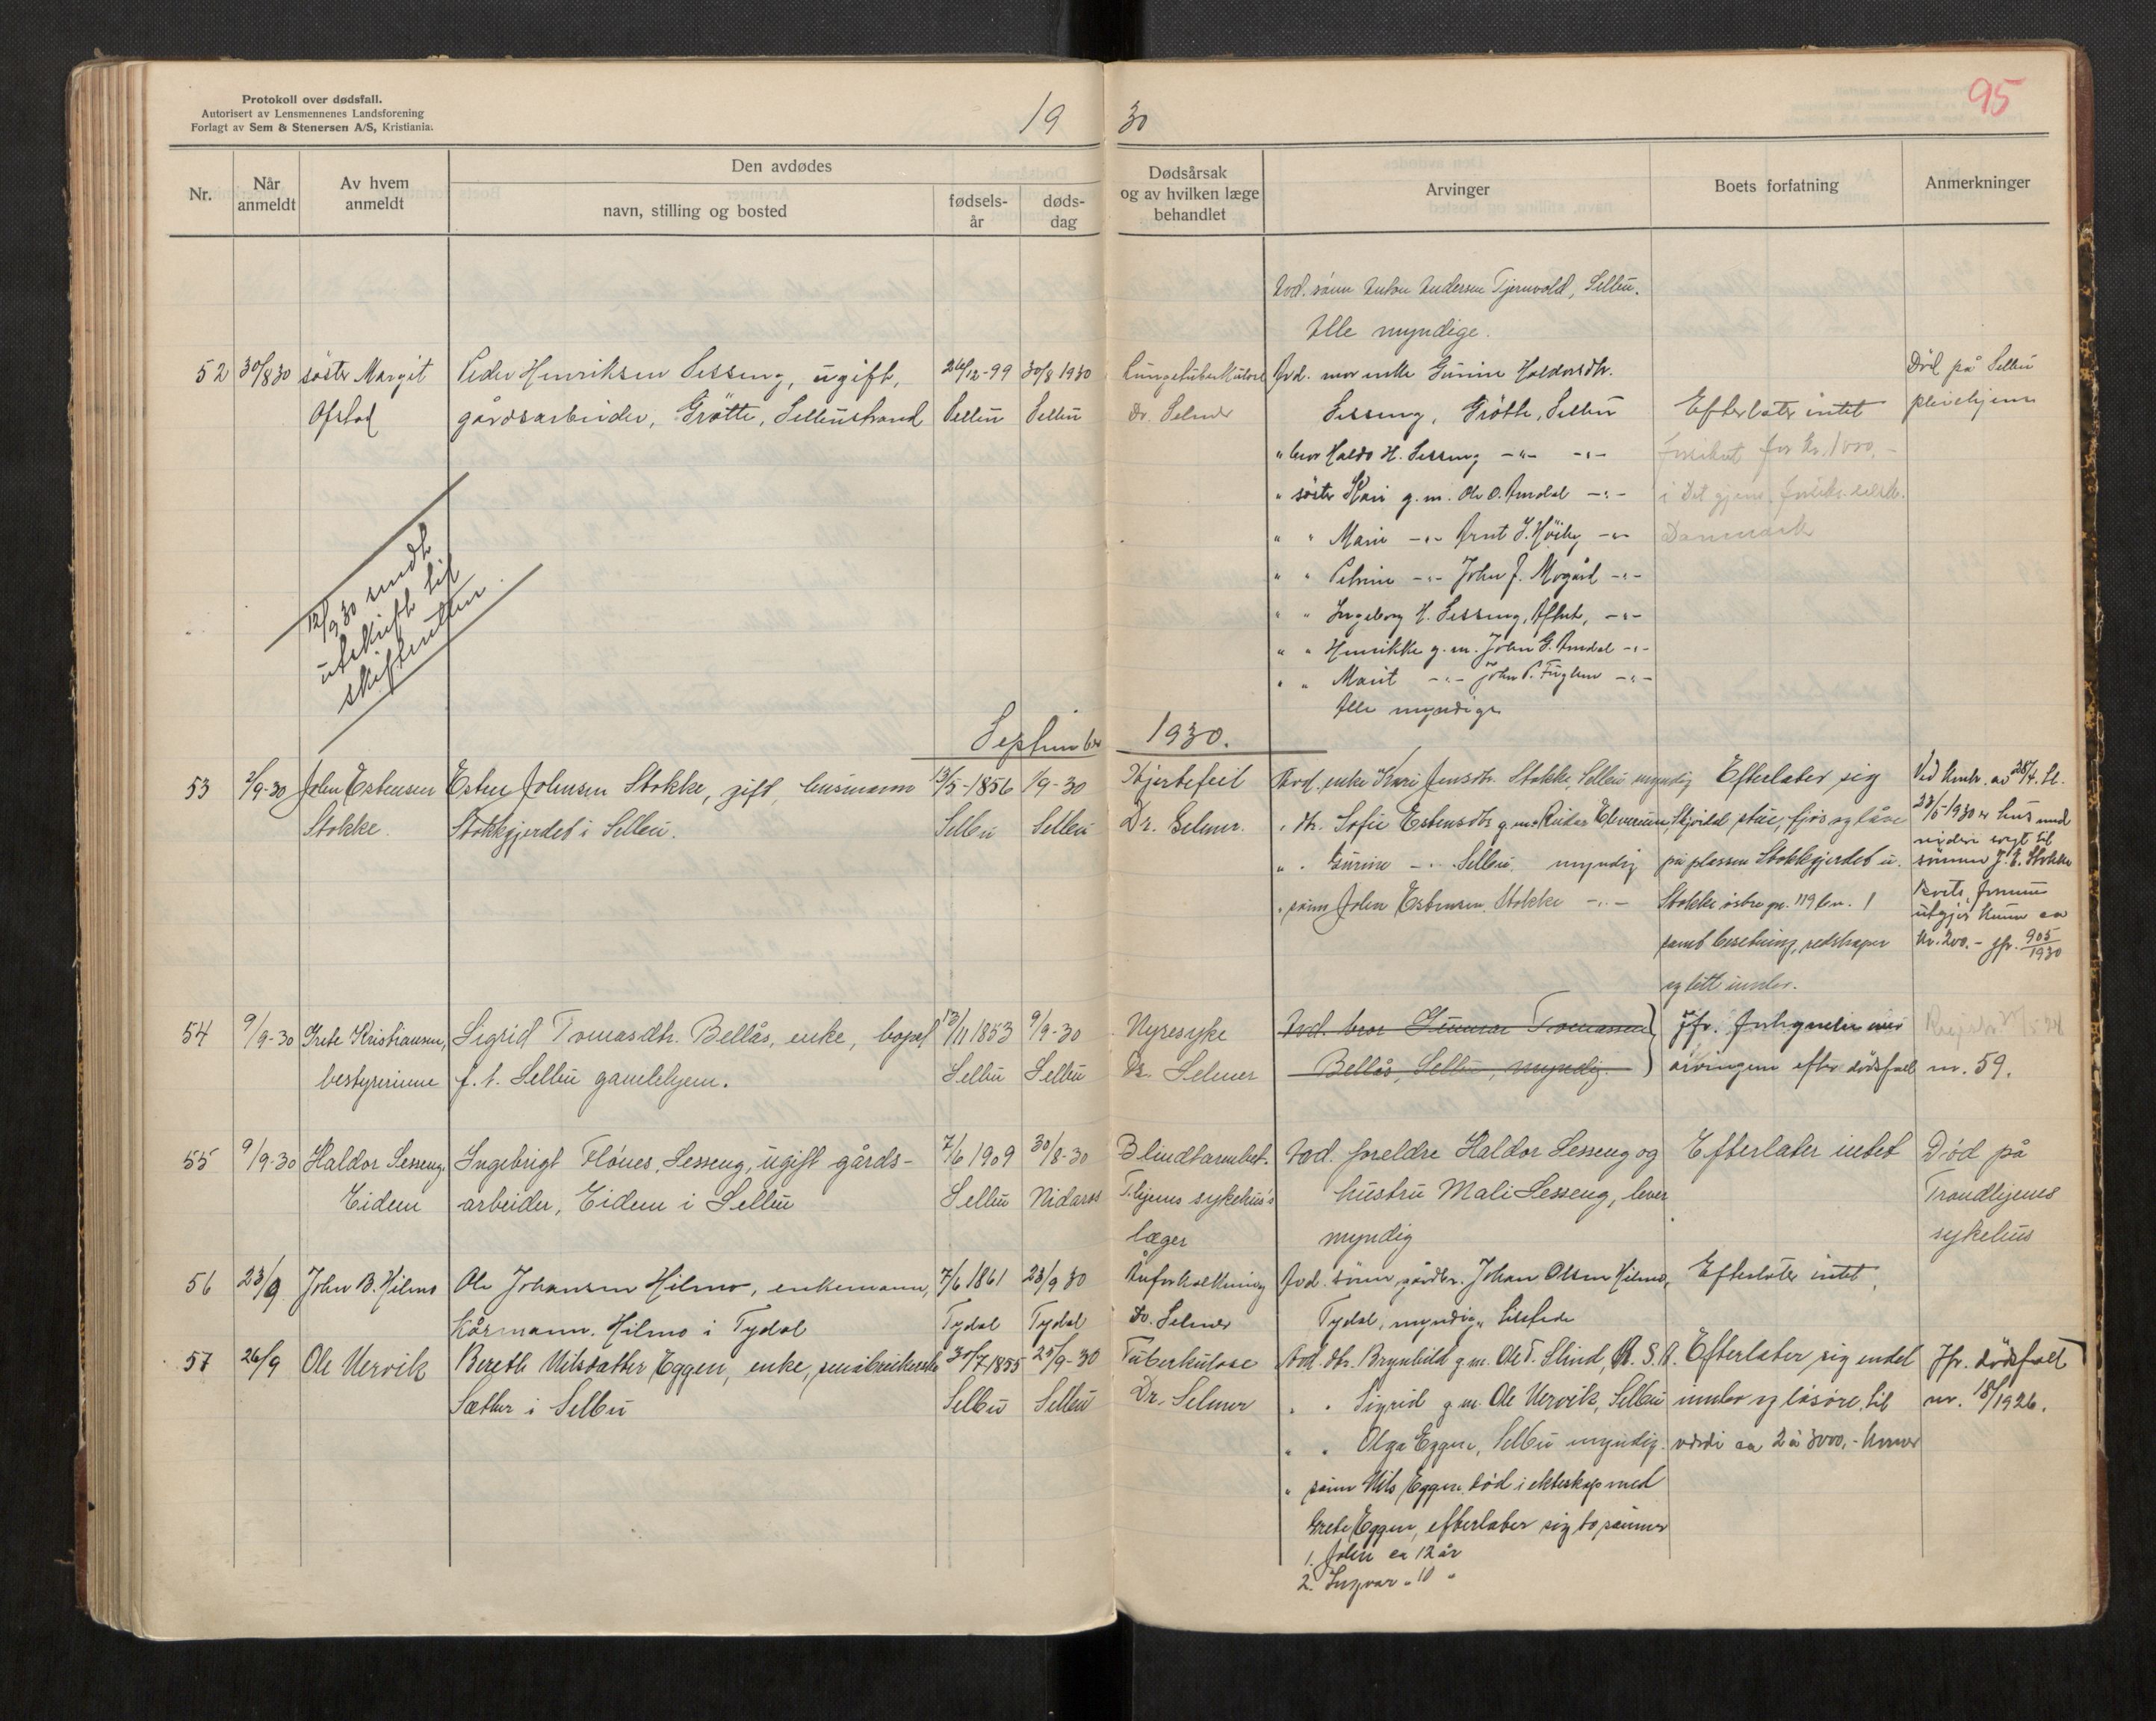 Protokoll over dødsfall.
Autorisert av Lensmennenes Landsforening
Forlagt av Sem & Stenersen A/S, Kristiania.
19 30
95
Nr.
Når anmeldt
Av hvem anmeldt
Den avdødes
navn, stilling og bosted
fødsels-år
døds-dag
Dødsårsak og av hvilken læge behandlet
Arvinger
Boets forfatning
Anmerkninger
Avd. sønn Anton Andersen Tjernvold, Selbu.
Alle myndige.
52 30/8 30 søster Margit Peder Henriksen Sesseng, ugift, 24/12-99 30/8 1930 Lungetuberkulose Avd. mor enke Gurine Haldorsdtr. Død på Selbu
Ofstad gårdsarbeider, Grøtte, Selbustrand Selbu Selbu Dr. Selmer Sesseng, Grøtte, Selbu Efterlater intet pleiehjem
" bror Haldo H. Sesseng -"- -"- forsikret for kr. 1000,-
" søster Kari g.m. Ole O. Amdal -"- i Det gjens.
" " Marie -"- Arnt J. Høiby -"- Danmark
" " Petrine -"- John J. Mogård -"-
" " Ingeborg H. Sesseng, -"-
" " Henrikke g.m. John G. Amdal -"-
" " Marit -"- John P. Fuglem -"-
Alle myndige
12/9 30 sendt
utskrift til
skifteretten
September 1930.
53 2/9-30 John Estensen Esten Johnsen Stokke, gift, husmann 13/5-1856 1/9-30 Hjertefeil Avd. enke Kari Jensdtr. Stokke, Selbu myndig Efterlater sig Ved kontr. av 28/4. tl.
Stokke. Stokkgjerdet i Selbu. Selbu Selbu Dr. Selmer. " dtr. Sofie Estensdtr g.m. Reidar Elverum, Skjordal stue, fjøs og låve 23/5-1930 er hus med
" " Gurine -"- Selbu, myndig på plassen Stokkgjerdet u. videre solgt til sønnen J. E. Stokke
" sønn John Estensen Stokke -"- Stokke østre gn. 119 bn. 1 Boets formue utgjør kun ca
samt besetning, redskaper kr. 200.- jfr. 905/1930
og litt innbo.
54 9/9-30 Grete Kristiansen, Sigrid Tomasdtr. Bellås, enke, bopel 13/11 1853 9/9-30 Nyresyke Avd. bror Gunnar Tomassen } Jfr. arvinger
bestyrerinne f. t. Selbu gamlehjem. Selbu Selbu Dr. Selmer Bellås, Selbu, myndig. } arvingene efter dødsfall nr. 59.
55 9/9-30 Haldor Sesseng, Ingebrigt Flønes, Sesseng, ugift gårds- 7/6 1909 30/8-30 Blindtarmbet. Avd. foreldre Haldor Sesseng og Efterlater intet Død på
Eidem arbeider, Eidem i Selbu Selbu Nidaros T.hjems sykehus's hustru Mali Sesseng, lever Trondhjems
læger myndig sykehus
56 23/9 John B. Hilmo Ole Johansen Hilmo, enkemann, 7/6 1861 23/9 30 Åreforkalkning Avd. sønn gårdbr. Johan Olsen Hilmo, Efterlater intet
Kårmann. Hilmo i Tydal Tydal Tydal Dr. Selmer Tydal, myndig, tilstede
57 26/9 Ole Uervik Bereth Nilsdatter Eggen, enke, småbrukerske 30/7 1855 25/9-30 Tuberkulose Avd. dtr. Brynhild g.m. Ole T. Slind, Efterlater sig endel Jfr. dødsfall
Sæther i Selbu Selbu Selbu Dr. Selmer " " Sigrid g.m. Ole Uervik, Selbu innbo og løsøre til nr. 18/1926.
" " Olga Eggen, Selbu myndig. verdi ca 2 à 3000,- kroner
" sønn Nils Eggen død i ekteskap med
Grete Eggen, efterlater sig to sønner
1. John ca 12 år
2. Ingvar " 10 "